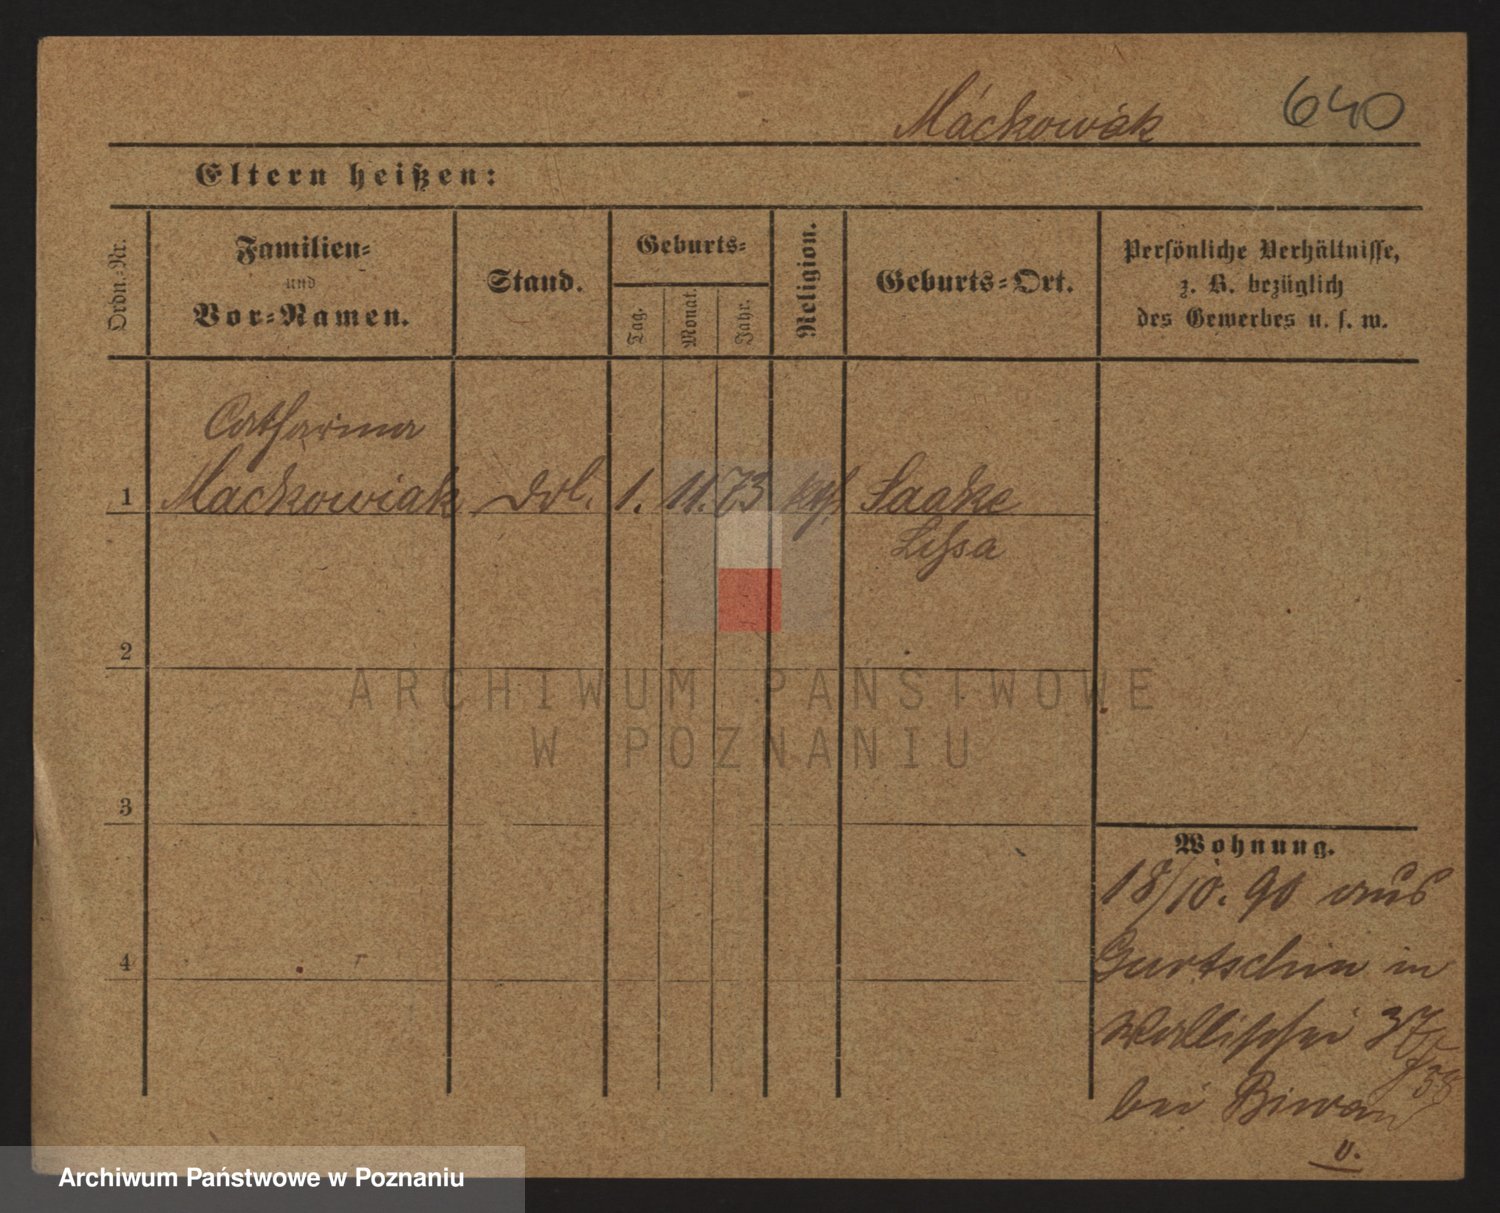 Maćkowiak 640
Eltern heißen:
Ordn.-Nr.
Familien-
und
Vor-Namen.
Stand.
Geburts-
Tag.
Monat.
Jahr.
Religion.
Geburts-Ort.
Persönliche Verhältnisse,
z. B. bezüglich
des Gewerbes u. s. w.
Catharina
1 Maćkowiak 1. 11. 73 kath
Lissa
2
ARCHIWUM PAŃSTWOWE
W POZNANIU
3
4
Wohnung.
18/10. 90 aus
Gurtschin in
Wallischei 37/38
bei
Archiwum Państwowe w Poznaniu